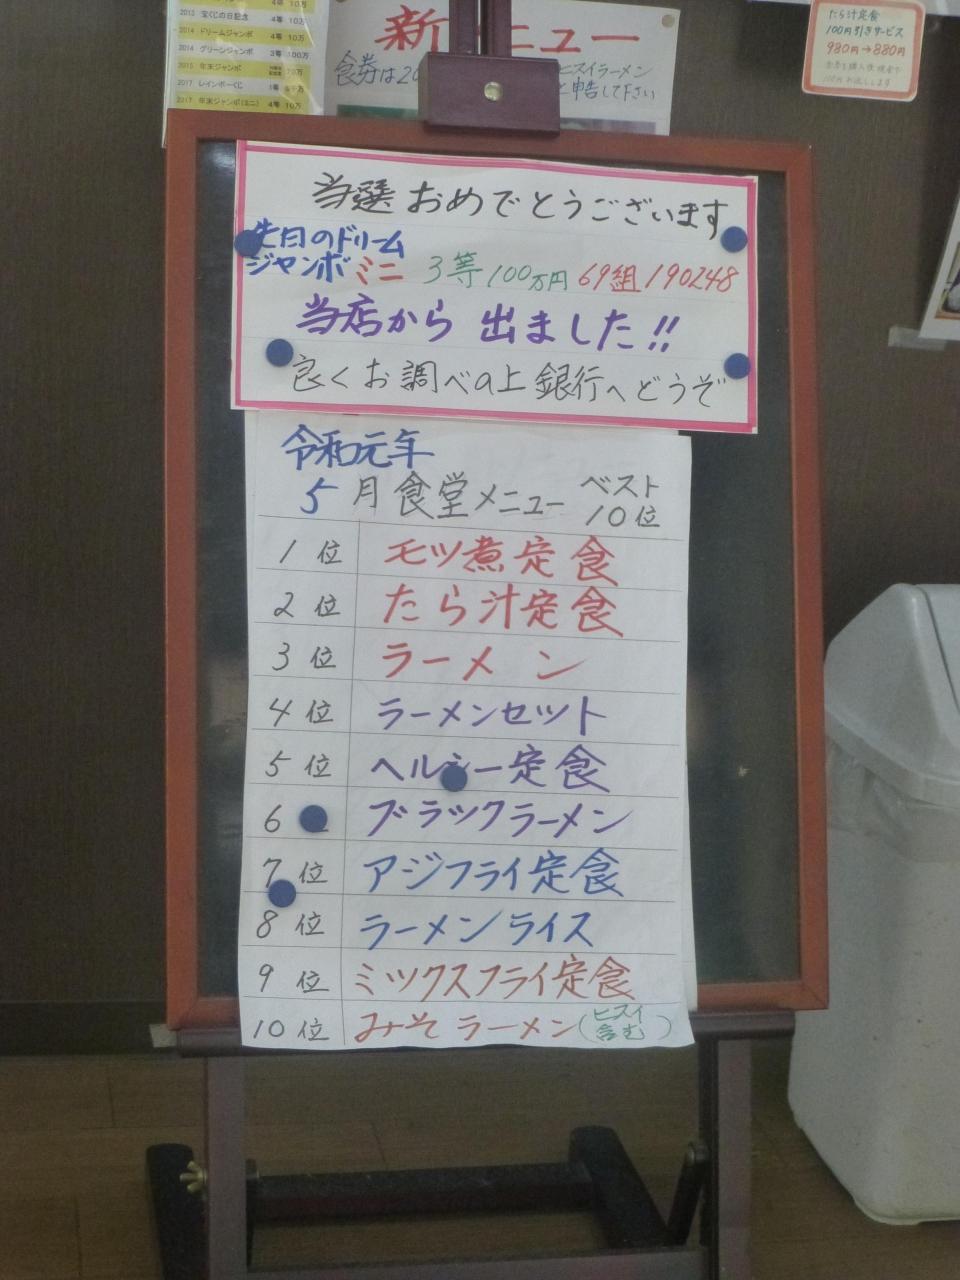 2013 宝くじの日記念 4等 10万
2014 ドリームジャンボ 4等 10万
2014 グリーンジャンボ 3等 100万
2015 年末ジャンボ
2017 レインボーくじ 1等
2017 年末ジャンボ(ミニ) 4等 10万
新 ニュー
食券は20 ヒスイラーメン
と申告して下さい
たら汁定食
100円引きサービス
980円→880円
当選おめでとうございます
先日のドリーム
ジャンボミニ 3等100万円 69組190248
当店から 出ました!!
良くお調べの上銀行へどうぞ
令和元年
5月食堂メニュー ベスト
10位
1位 モツ煮定食
2位 たら汁定食
3位 ラーメン
4位 ラーメンセット
5位 ヘルシー定食
6 ブラックラーメン
7位 アジフライ定食
8位 ラーメンライス
9位 ミックスフライ定食
10位 みそラーメン(ヒスイ
含む)